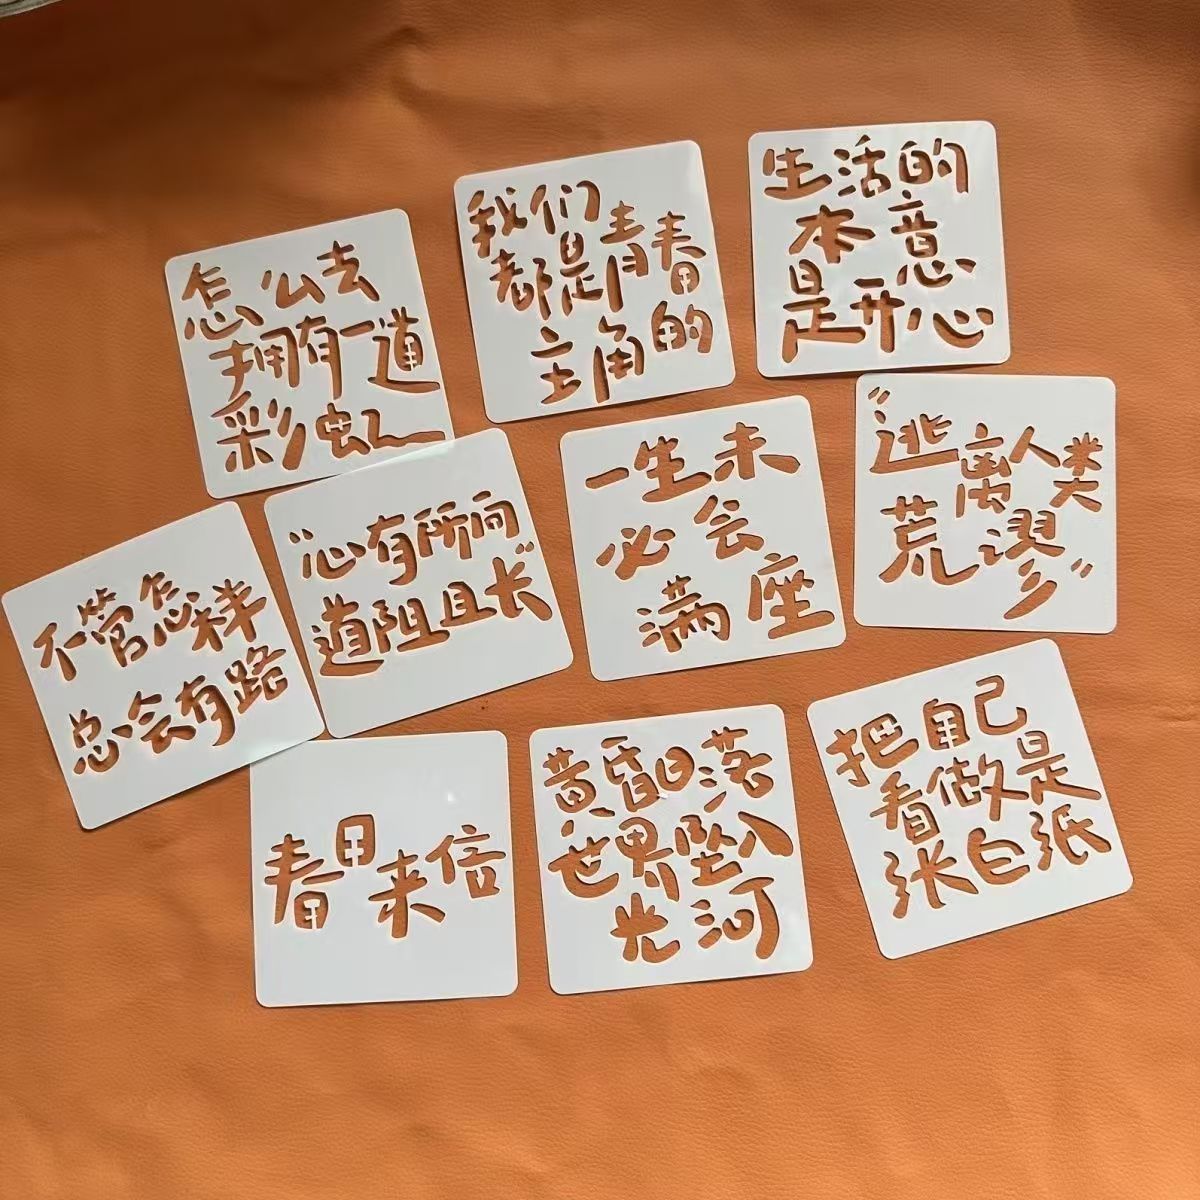 怎么去
拥有一道
彩虹
我们
都是青春
主角的
生活的
本意
是开心
"逃离人类
荒谬"
一生未
必会
满座
"心有所向
道阻且长"
不管怎样
总会有路
春日来信
黄昏日落
世界坠入
光河
把自己
看做是
张白纸